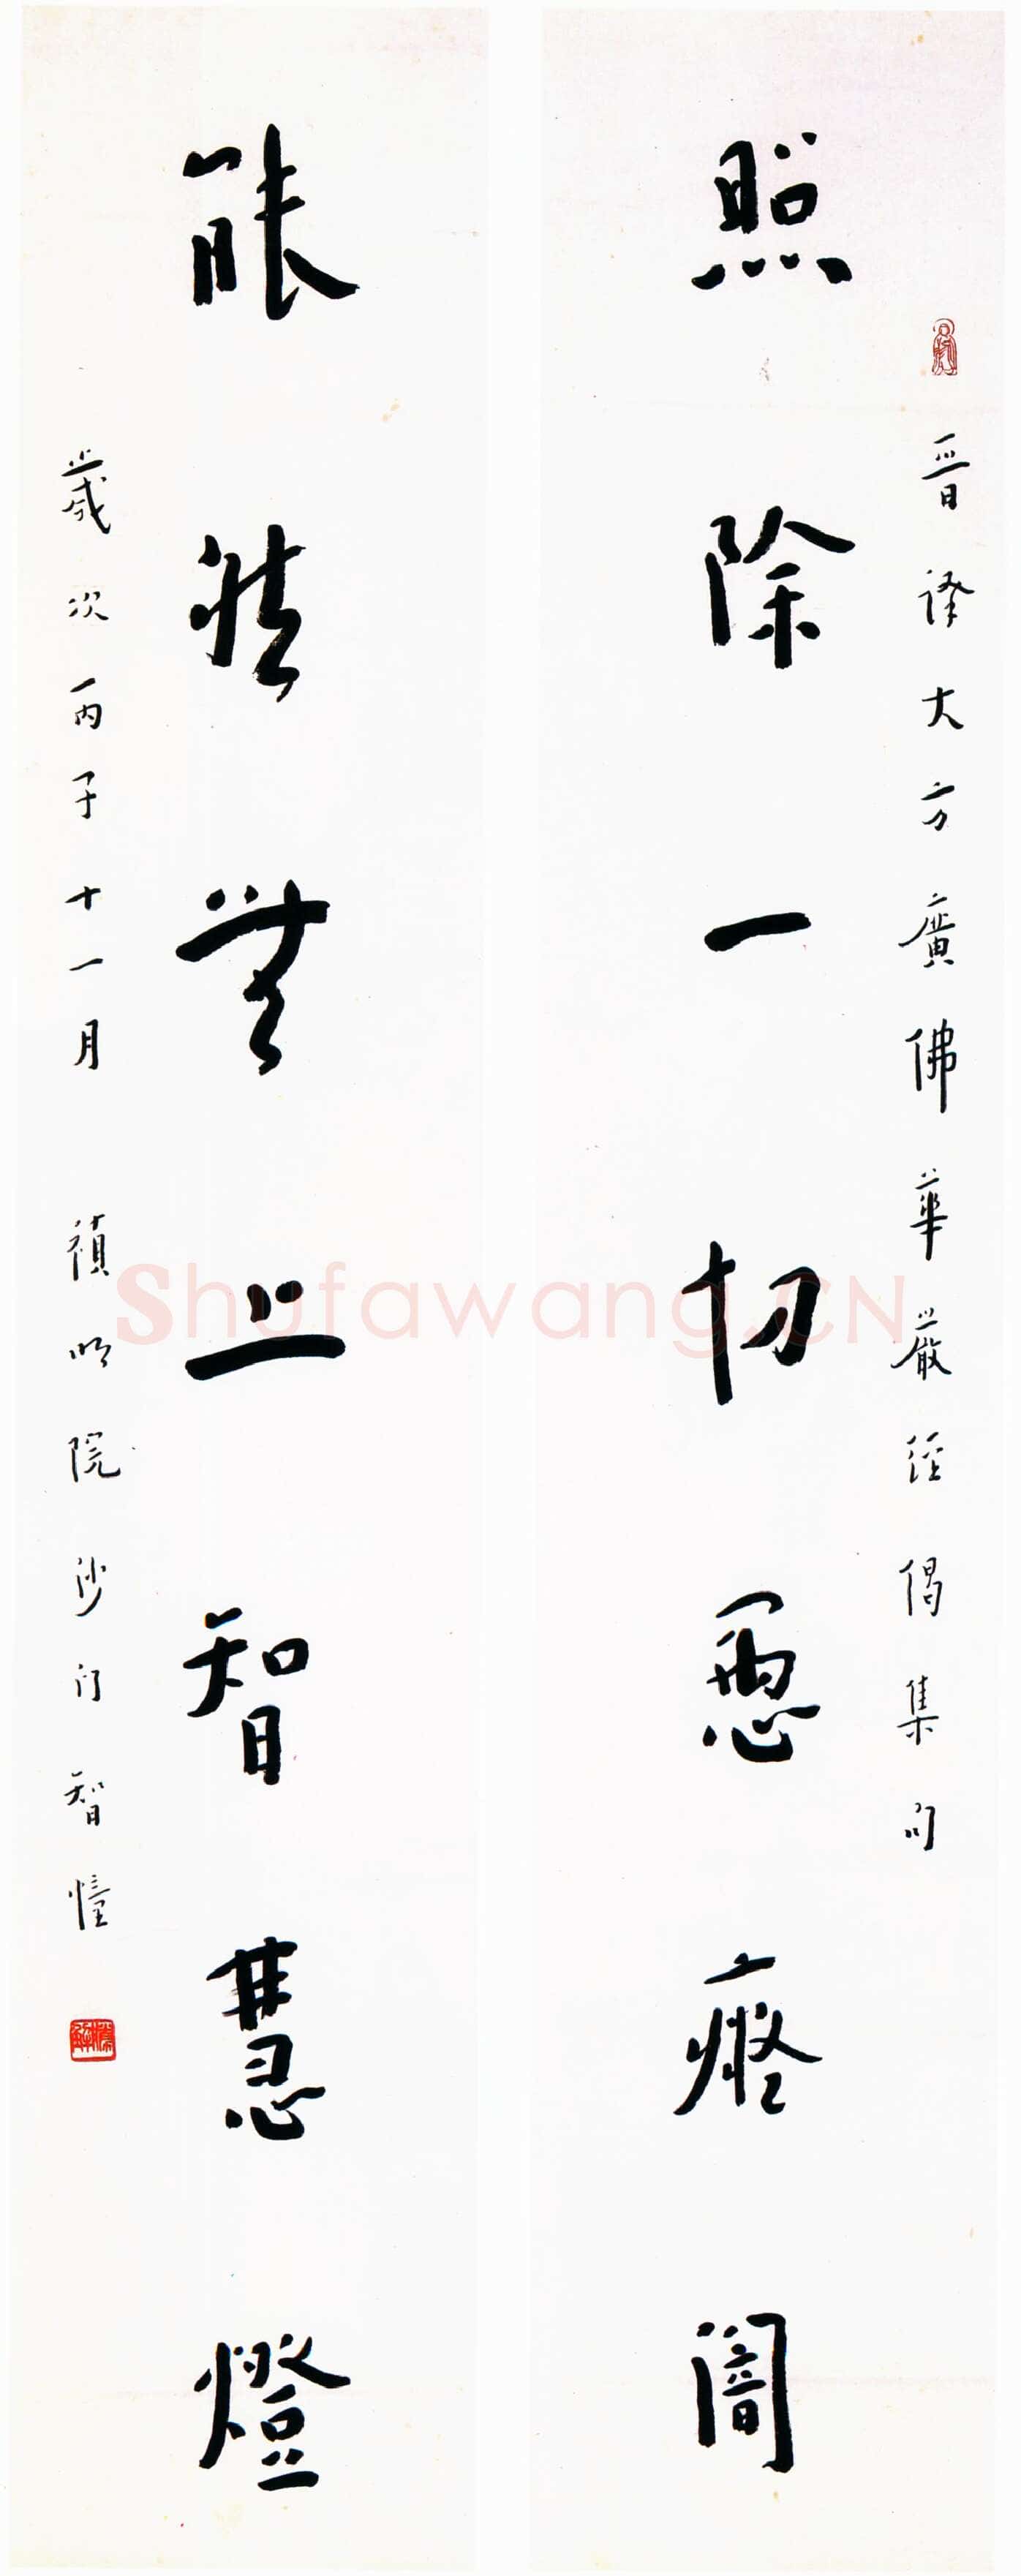 晉譯大方廣佛華嚴經偈集句
照除一切惡癡闇
能然無上智慧燈
歲次丙子十一月 禎明院沙門智幢
Shufawang.CN